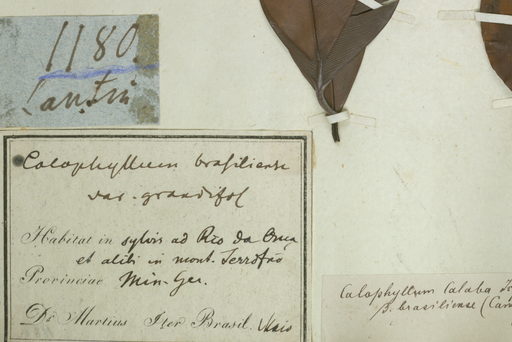 1180.
Calophyllum brasiliense
var. grandifol
Habitat in sylvis ad Rio da
et alibi in mont. Serro frio
Provinciae Min. Ger.
Dr Martius Iter Brasil. Maio
Calophyllum Calaba
β. brasiliense (Cam